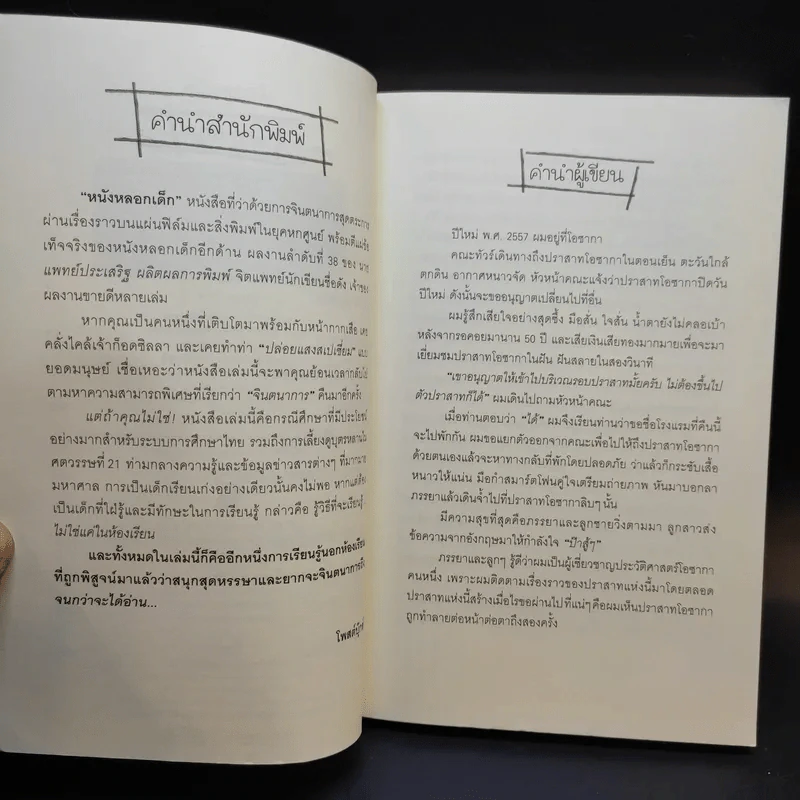 คำนำสำนักพิมพ์
“หนังหลอกเด็ก” หนังสือที่ว่าด้วยการจินตนาการสุดตระการ
ผ่านเรื่องราวบนแผ่นฟิล์มและสิ่งพิมพ์ในยุคหกศูนย์ พร้อมตีแผ่ข้อ
เท็จจริงของหนังหลอกเด็กอีกด้าน ผลงานลำดับที่ 38 ของ
แพทย์ประเสริฐ ผลิตผลการพิมพ์ จิตแพทย์นักเขียนชื่อดัง เจ้าของ
ผลงานขายดีหลายเล่ม
หากคุณเป็นคนหนึ่งที่เติบโตมาพร้อมกับหน้ากากเสือ เคย
คลั่งไคล้เจ้าก็อดซิลลา และเคยทำท่า “ปล่อยแสงสเปเซี่ยม” แบบ
ยอดมนุษย์ เชื่อเหอะว่าหนังสือเล่มนี้จะพาคุณย้อนเวลากลับไป
ตามหาความสามารถพิเศษที่เรียกว่า “จินตนาการ” คืนมาอีกครั้ง
แต่ถ้าคุณไม่ใช่! หนังสือเล่มนี้คือกรณีศึกษาที่มีประโยชน์
อย่างมากสำหรับระบบการศึกษาไทย รวมถึงการเลี้ยงดูบุตรหลานใน
ศตวรรษที่ 21 ท่ามกลางความรู้และข้อมูลข่าวสารต่างๆ ที่มากมาย
มหาศาล การเป็นเด็กเรียนเก่งอย่างเดียวนั้นคงไม่พอ หากแต่ต้อง
เป็นเด็กที่ใฝ่รู้และมีทักษะในการเรียนรู้ กล่าวคือ รู้วิธีที่จะเรียนรู้
ไม่ใช่แค่ในห้องเรียน
และทั้งหมดในเล่มนี้ก็คืออีกหนึ่งการเรียนรู้นอกห้องเรียน
ที่ถูกพิสูจน์มาแล้วว่าสนุกสุดหรรษาและยากจะจินตนาการถึง
จนกว่าจะได้อ่าน...
โพสต์บุ๊กส์
คำนำผู้เขียน
ปีใหม่ พ.ศ. 2557 ผมอยู่ที่โอซากา
คณะทัวร์เดินทางถึงปราสาทโอซากาในตอนเย็น ตะวันใกล้
ตกดิน อากาศหนาวจัด หัวหน้าคณะแจ้งว่าปราสาทโอซากาปิดวัน
ปีใหม่ ดังนั้นจะขออนุญาตเปลี่ยนไปที่อื่น
ผมรู้สึกเสียใจอย่างสุดซึ้ง มือสั่น ใจสั่น น้ำตายังไม่คลอเบ้า
หลังจากรอคอยมานาน 50 ปี และเสียเงินเสียทองมากมายเพื่อจะมา
เยี่ยมชมปราสาทโอซากาในฝัน ฝันสลายในสองวินาที
“เขาอนุญาตให้เข้าไปบริเวณรอบปราสาทมั้ยครับ ไม่ต้องขึ้นไป
ตัวปราสาทก็ได้” ผมเดินไปถามหัวหน้าคณะ
เมื่อท่านตอบว่า “ได้” ผมจึงเรียนท่านว่าขอชื่อโรงแรมที่คืนนี้
จะไปพักกัน ผมขอแยกตัวออกจากคณะเพื่อไปให้ถึงปราสาทโอซากา
ด้วยตนเองแล้วจะหาทางกลับที่พักโดยปลอดภัย ว่าแล้วก็กระชับเสื้อ
หนาวให้แน่น มือกำสมาร์ตโฟนคู่ใจเตรียมถ่ายภาพ หันมาบอกลา
ภรรยาแล้วเดินจ้ำไปที่ปราสาทโอซากาลิบๆ นั้น
มีความสุขที่สุดคือภรรยาและลูกชายวิ่งตามมา ลูกสาวส่ง
ข้อความจากอังกฤษมาให้กำลังใจ “ป๊าสู้ๆ”
ภรรยาและลูกๆ รู้ดีว่าผมเป็นผู้เชี่ยวชาญประวัติศาสตร์โอซากา
คนหนึ่ง เพราะผมติดตามเรื่องราวของปราสาทแห่งนี้มาโดยตลอด
ปราสาทแห่งนี้สร้างเมื่อไรขอผ่านไป ที่แน่ๆ คือผมเห็นปราสาทโอซากา
ถูกทำลายต่อหน้าต่อตาถึงสองครั้ง